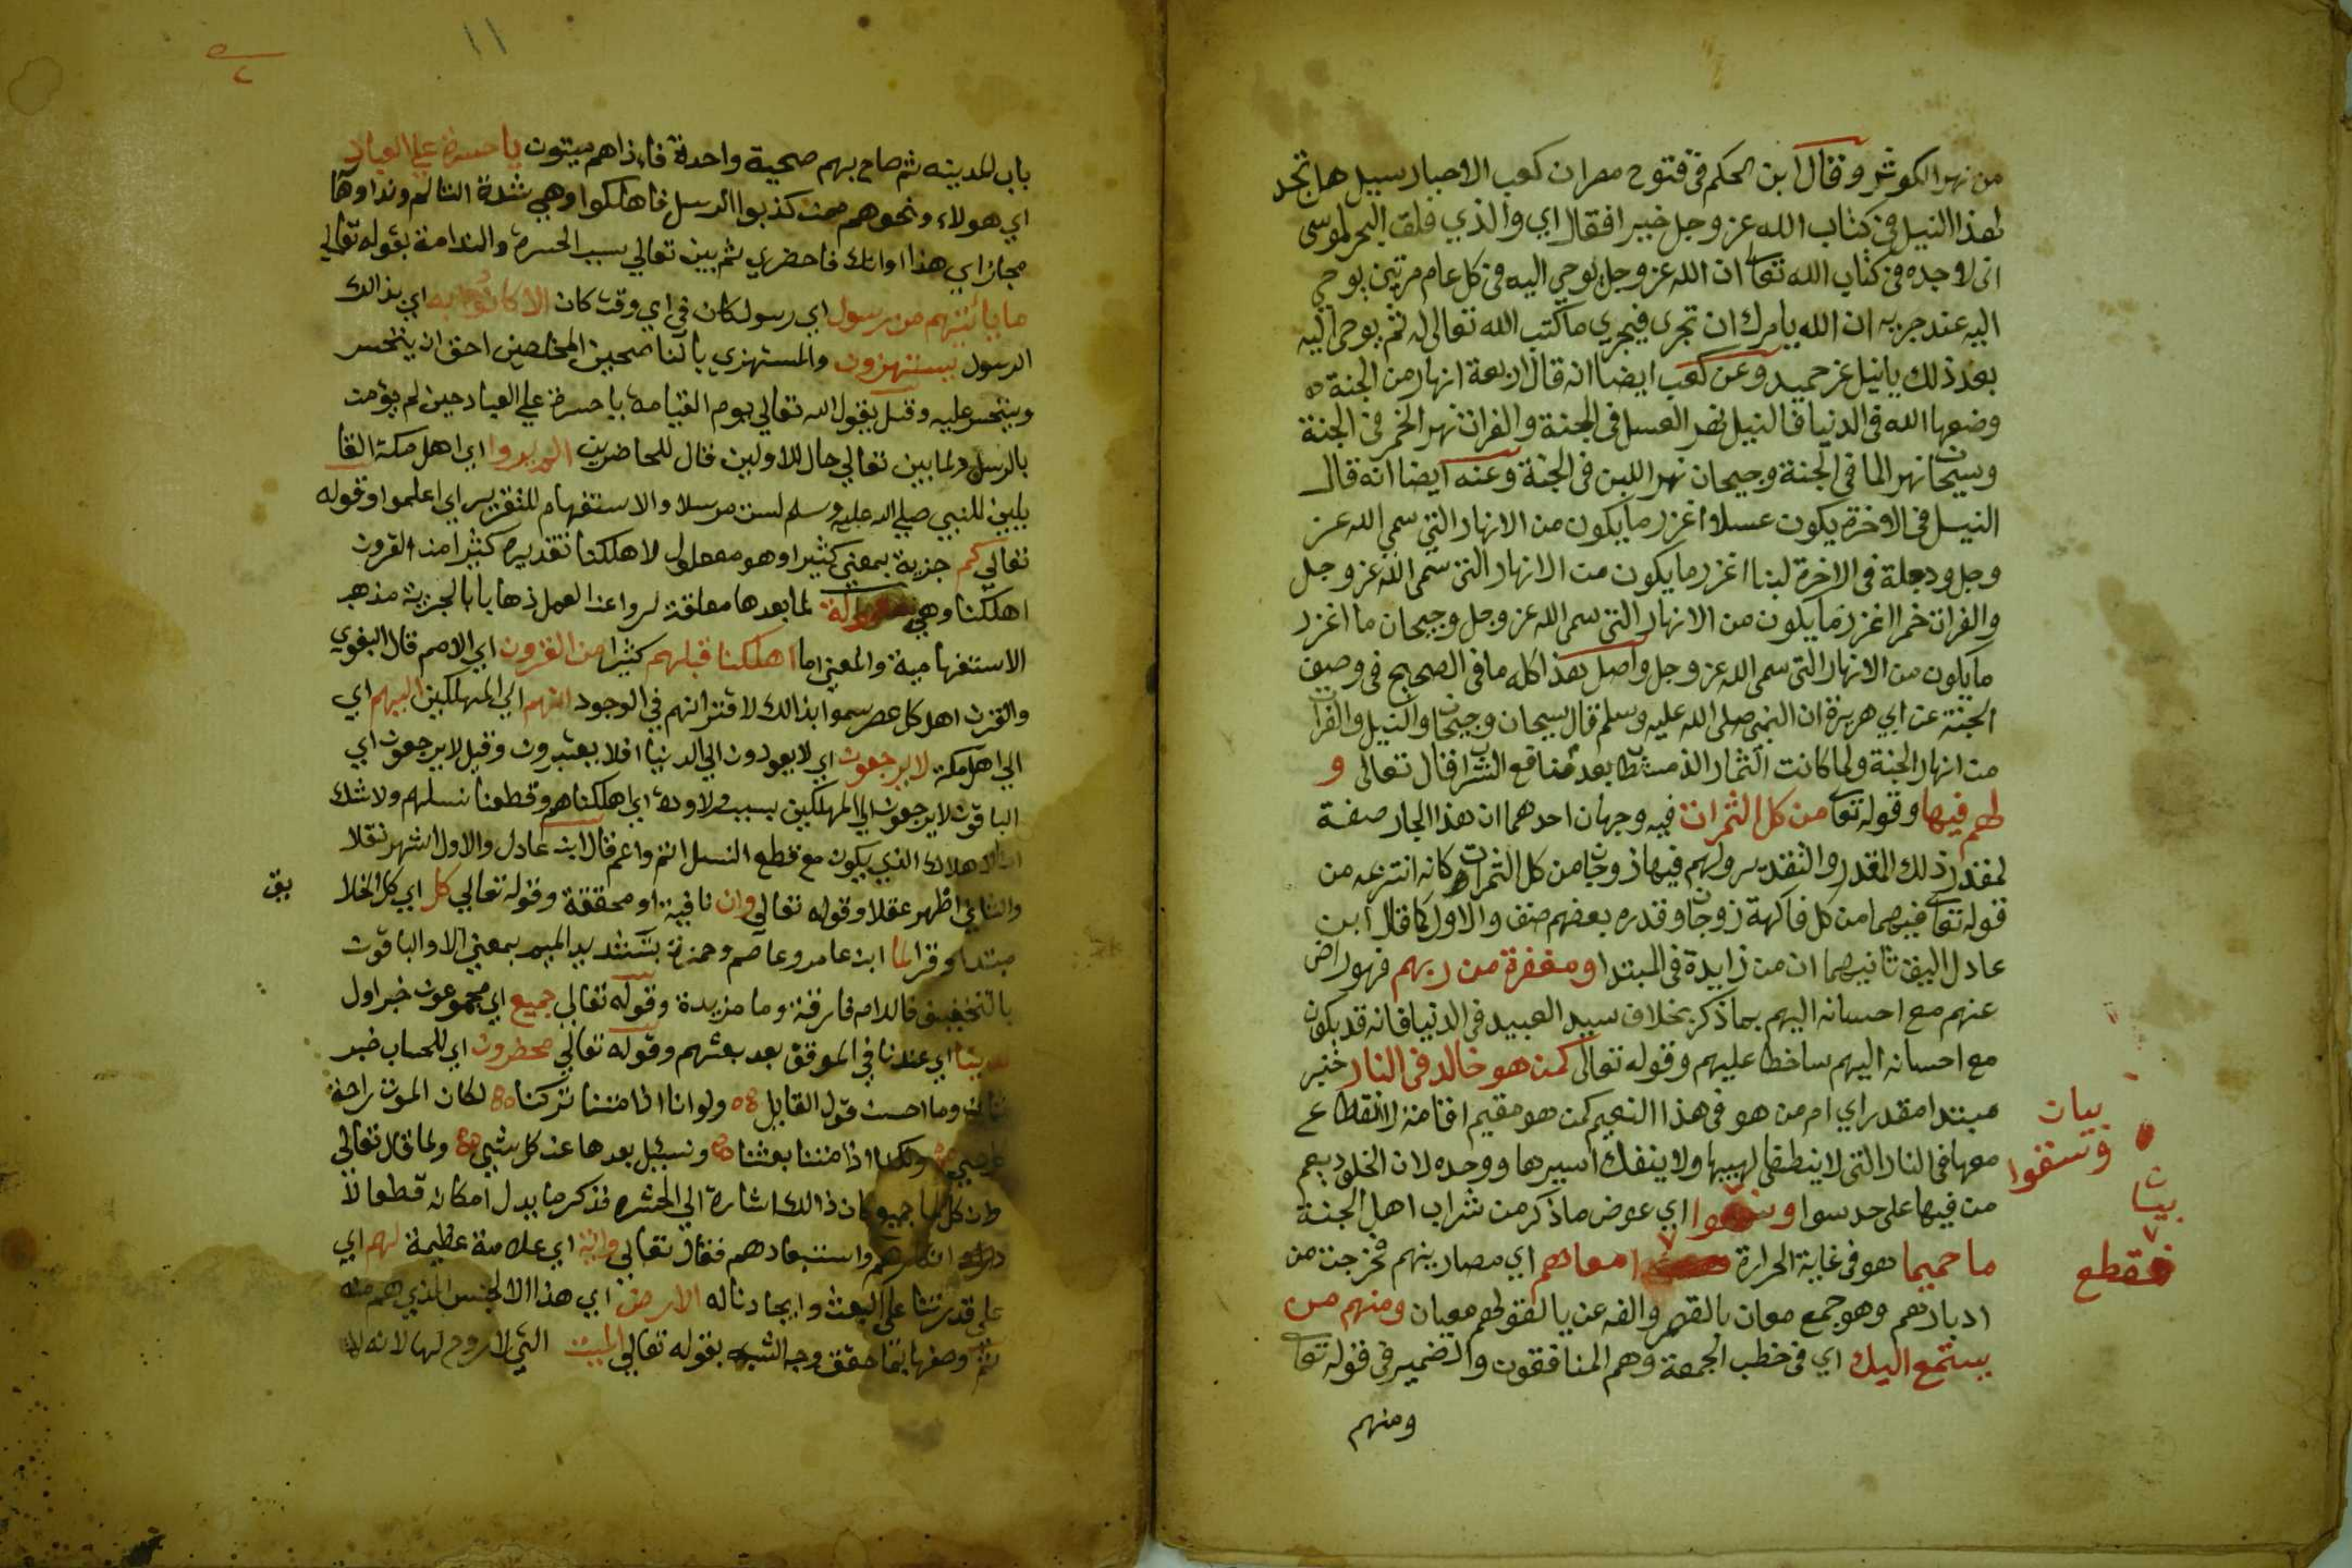 من نهر الكوثر وقال ابن الحكم في فتوح مصر ان كعب الاحبار سيل هل تجد
لهذا النيل في كتاب الله عز وجل خبيرا فقال اي والذي فلق البحر لموسى
اني لاوجده في كتاب الله تعا ان الله عز وجل يوحي اليه في كل عام مرتين يوحي
اليه عند جريه ان الله يامرك ان تجري فيجري ما كتب الله تعالى له ثم يوحى اليه
بعد ذلك يا نيل غر حميد وعن كعب ايضا انه قال اربعة انهار من الجنة
وضعها الله في الدنيا فالنيل نهر العسل في الجنة والفرات نهر الخمر في الجنة
وسيحان نهر الما في الجنة وجيحان نهر اللبن في الجنة وعنه ايضا انه قال
النيل في الاخرة يكون عسلا اغزر ما يكون من الانهار التي سمي الله عز
وجل ودجلة في الاخرة لبنا اغزر ما يكون من الانهار التي سمى الله عز وجل
والفرات خمرا اغزر ما يكون من الانهار التي سمى الله عز وجل وجيحان ما اغزر
ما يكون من الانهار التي سمى الله عز وجل واصل هذا كله ما في الصحيح في وصف
الجنة عن ابي هريرة ان النبي صلى الله عليه وسلم قال سيحان وجيحان والنيل والفرات
من انهار الجنة ولما كانت الثمار الذ مستطابا بعد منافع الشراب قال تعالى و
لهم فيها وقوله تعا من كل الثمرات فيه وجهان احدهما ان هذا الجار صفة
لمقدر ذلك المقدر والتقدير ولهم فيها زوجان من كل الثمرات كانه انتزعه من
قوله تعا فيهما من كل فاكهة زوجان وقدره بعضهم صنف والاول كما قال ابن
عادل اليق ثانيهما ان من زايدة في المبتدا ومغفرة من ربهم فهو راض
عنهم مع احسانه اليهم بما ذكر بخلاف سيد العبيد في الدنيا فانه قد يكون
مع احسانه اليهم ساخطا عليهم وقوله تعالى كمن هو خالد في النار خبر
مبتدا مقدر اي ام من هو في هذا النعيم كمن هو مقيم اقامة لا انقطاع
معها في النار التي لا ينطفي لهيبها ولا ينفك اسيرها ووحده لان الخلود يعم
من فيها على حد سوا وسقوا اي عوض ما ذكر من شراب اهل الجنة
ما حميما هو في غاية الحرارة امعاهم اي مصارينهم فخرجت من
ادبارهم وهو جمع معان بالقصر والفه عن يا لقولهم معيان ومنهم من
يستمع اليك اي في خطب الجمعة وهم المنافقون والضمير في قوله تعا
ومنهم
بيان
وسقوا
بيان
فقطع
١١
باب المدينه ثم صاح بهم صحية واحدة فاذا هم ميتون يا حسرة علي العباد
اي هولاء ونحوهم ممن كذبوا الرسل فاهلكوا وهي شدة التالم ونداوها
مجاز اي هذا اوانك فاحضري ثم بين تعالي سبب الحسرة والندامة بقوله تعالي
ما ياتيهم من رسول اي رسول كان في اي وقت كان الا كانوا به اي بذالك
الرسول يستهزون والمستهزي بالناصحين المخلصين احق ان يتحسر
ويتحسر عليه وقيل يقول الله تعالي يوم القيامة يا حسرة علي العباد حين لم يؤمن
بالرسل ولما بين تعالي حال للاولين قال للحاضرين الم يروا اي اهل مكة القا
يلين للنبي صلي الله عليه وسلم لست مرسلا والاستفهام للتقرير اي اعلموا وقوله
تعالي كم جزية بمعني كثيرا وهو مفعول لاهلكنا تقديره كثيرا من القرون
اهلكنا وهي معمولة لما بعدها معلقة لروا عن العمل ذهابا بالجزية مذهب
الاستفهامية والمعني اما اهلكنا قبلهم كثيرا من القرون اي الامم قال البغوي
والقرن اهل كل عصر سموا بذالك لاقترانهم في الوجود انهم اي المهلكين اليهم اي
الي اهل مكة لا يرجعون اي لا يعودون الي الدنيا افلا يعتبرون وقيل لا يرجعون اي
الباقون لا يرجعون الي المهلكين بسبب ولاودة اي اهلكناهم وقطعنا نسلهم ولا شك
ان الاهلاك الذي يكون مع قطع النسل اتم واعم قال ابن عادل والاول اشهر نقلا
والثاني اظهر عقلا وقوله تعالي وان نافية او محققة وقوله تعالي كل اي كل الخلا
يق
مبتدا وقرا لما ابن عامر وعاصم وحمزة بتشديد الميم بمعني الا والباقون
بالتخفيف فاللام فارقة وما مزيدة وقوله تعالي جميع اي مجموعون خبر اول
لدينا اي عندنا في الموقف بعد بعثهم وقوله تعالي محضرون اي للحساب خبر
ثان وما احسن قول القايل ولو انا اذا متنا تركنا لكان الموت راحة
ولكنا اذا متنا بعثنا ونسيل بعدها عن كل شي ولما قال تعالي
وان كل لما جميع كان ذالك اشارة الي الحشر فذكر ما يدل امكانه قطعا لا
انكارهم واستبعادهم فقال تعالي واية اي علامة عظيمة لهم اي
علي قدرتنا علي البعث وايجادنا له الارض اي هذا الجنس الذي هم منه
ثم وصفها بما حقق وجه الشبه بقوله تعالي الميتة التي لا روح لها لانه لا